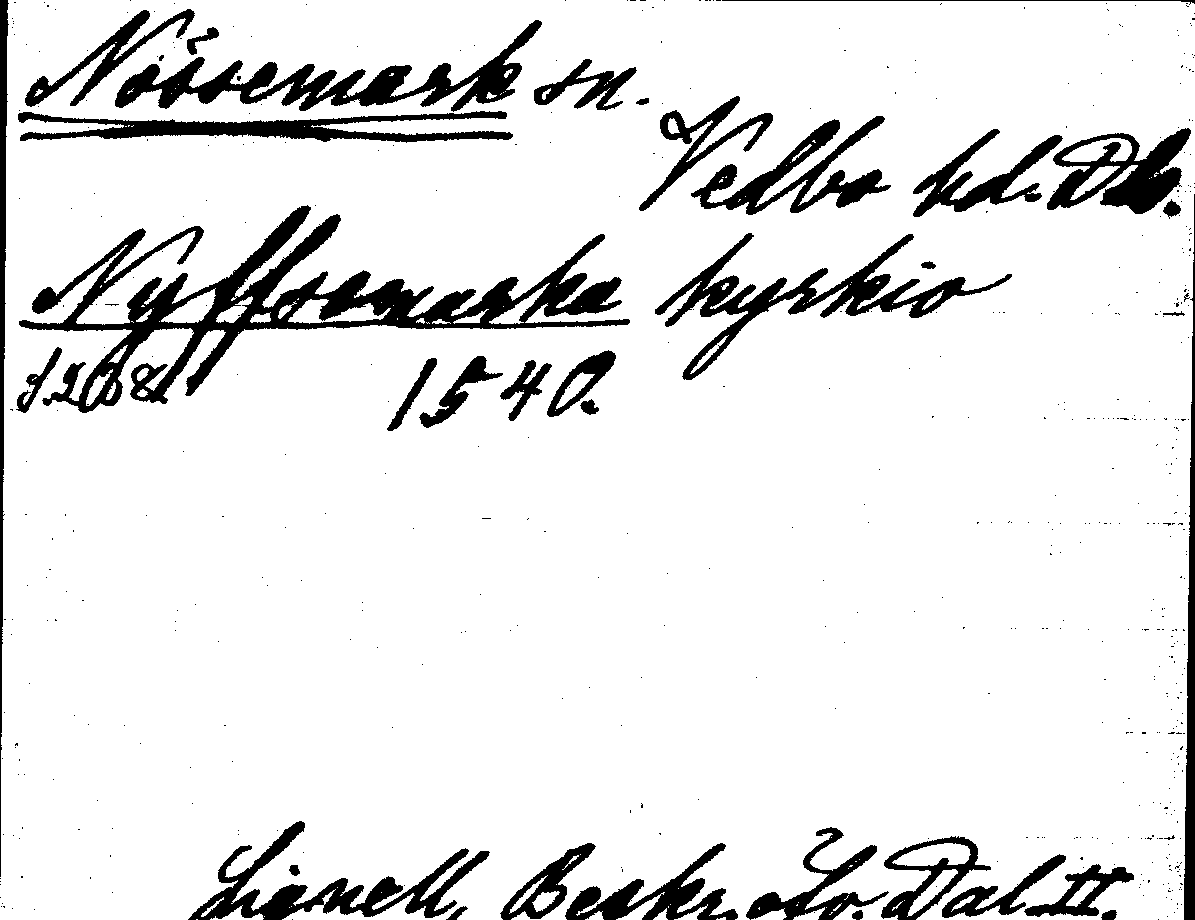 Nössemark sn.
Vedbo hd. Dls.
Nyffsemarka kyrkio
s. 208 1540.
Lignell, Beskr. öfv. Dal II.